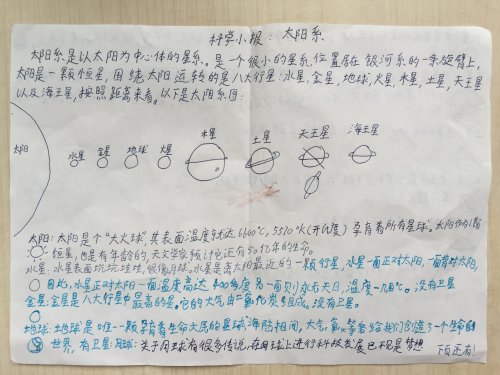 科学小报：太阳系
太阳系是以太阳为中心体的星系。是一个很小的星系,位置居在银河系的一条旋臂上,
太阳是一颗恒星,围绕太阳运转的是八大行星:水星,金星,地球,火星,木星,土星,天王星
以及海王星,按照距离来看。以下是太阳系图:
太阳 水星 金星 地球 火星 木星 土星 天王星 海王星
太阳:太阳是个“大火球”其表面温度就达6000℃,5510°K(开氏度)孕育着所有星球。太阳作为1颗
恒星,也是有年龄的,天文学家统计它还有50亿年的生命。
水星:水星表面坑坑洼洼,很像月球。水星是离太阳最近的一颗行星,水星一面正对太阳,一面背对太阳,
因此,水星正对太阳一面温度高达400多度另一面则永无天日,温度-几百℃。没有卫星
金星:金星是八大行星中最亮的星。它的大气由二氧化炭组成。没有卫星。
地球:地球是唯一一颗孕育着生命文质的星球海陆相间,大气,氧等等给我们创造了一个生命的
世界,有卫星:月球:关于月球有很多传说,在月球上进行科技发展已不只是梦想
下页还有!